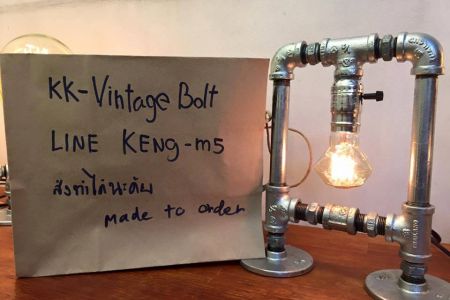 KK-Vintage Bolt
LINE KENG-m5
สั่งทำได้นะครับ
made to order